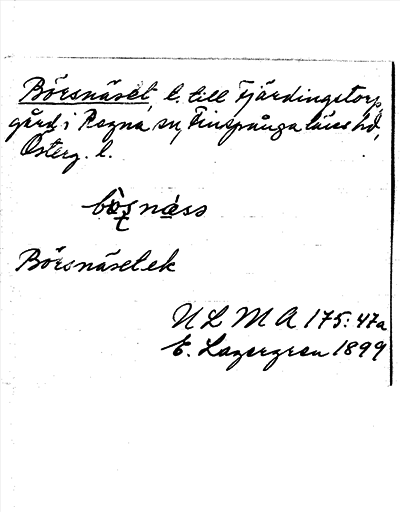 Börsnäset, l. till Fjärdingstorp,
gård i Regna sn, Finspånga läns hd,
Österg. l.
bo̱s næss
Börsnäset ek
ULMA 175:47a
E. Lagergren 1899